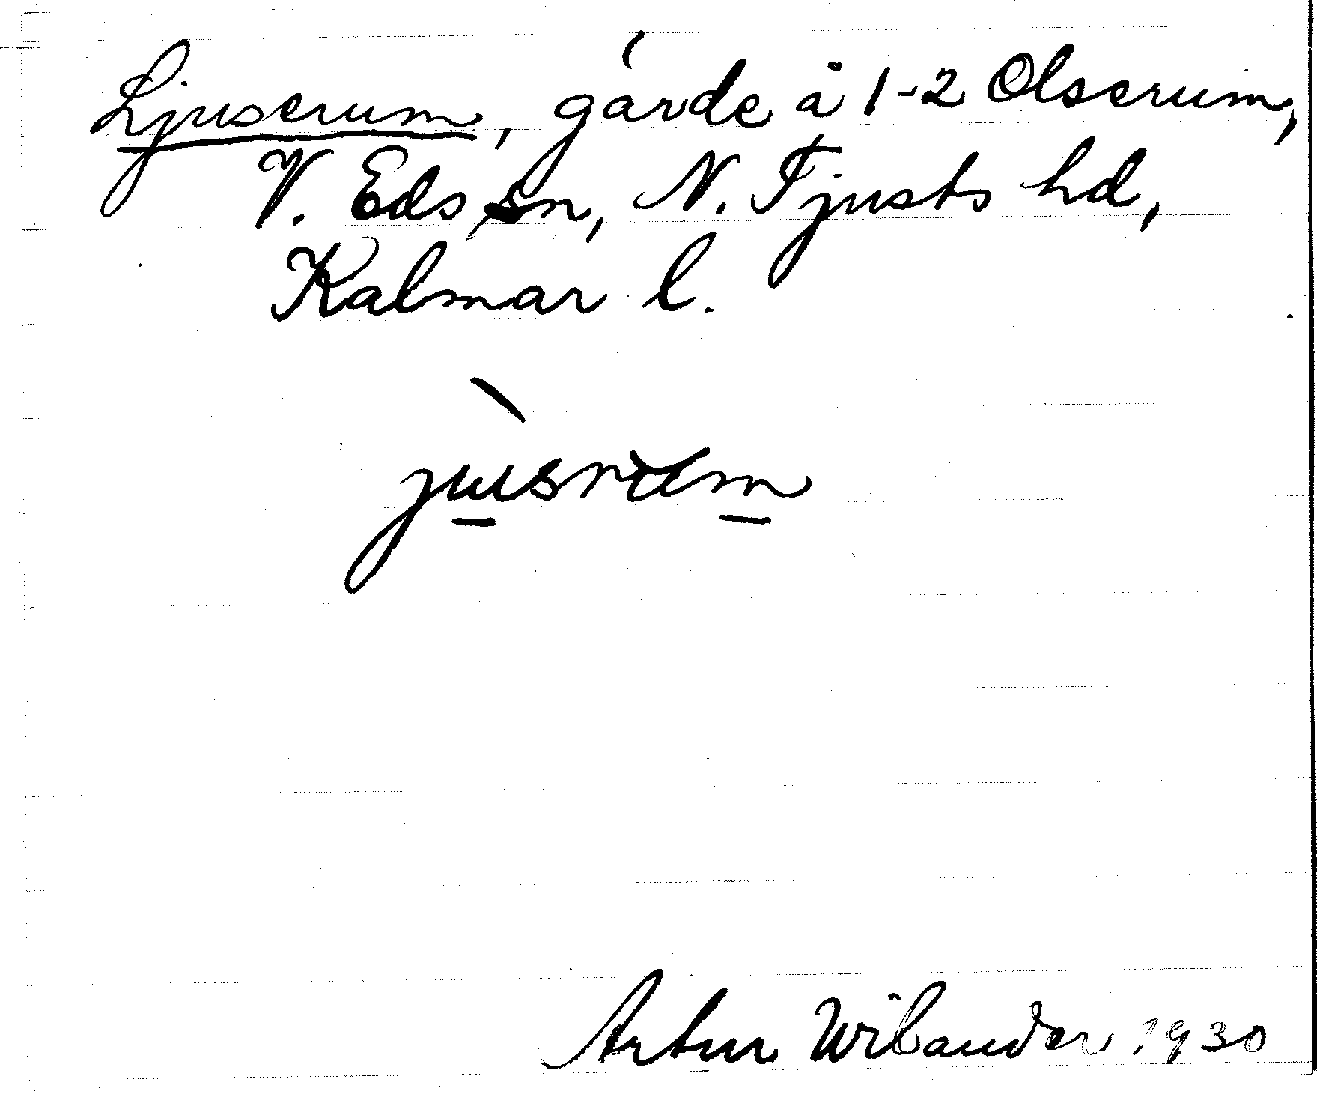 Ljuserum, gärde å 1-2 Olserum,
V. Eds sn, N. Tjusts hd,
Kalmar l.
jusrum
Artur Wilander 1930